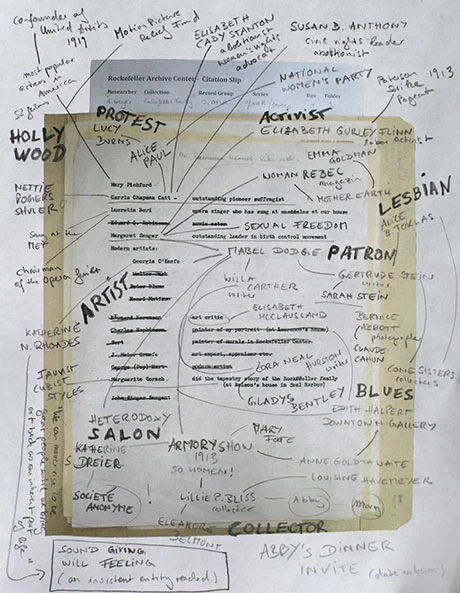 co-founder of
United Artists
1919
Motion Picture
Relief Fund
ELISABETH
CADY STANTON
abolitionist
women's rights
advocate
SUSAN B. ANTHONY
civil rights leader
abolitionist
most popular
actress in
America
52 films
Rockefeller Archive Center - Citation Slip
Researcher Collection Record Group Series Box Folder
NATIONAL
WOMEN'S PARTY
Paterson 1913
Strike
Pageant
HOLLY
WOOD
PROTEST
LUCY
BURNS
ALICE
PAUL
ACTIVIST
ELIZABETH GURLEY FLINN
labor activist
EMMA
GOLDMAN
WOMAN REBEL
magazine
MOTHER EARTH
LESBIAN
ALICE
B. TOKLAS
NETTIE
ROGERS
SHULER
Mary Pickford
Carrie Chapman Catt - outstanding pioneer suffragist
Lucretia Bori opera singer who has sung at musicales at our house
Edward G. Robinson movie actor
SEXUAL FREEDOM
Margaret Sanger outstanding leader in birth control movement
Modern artists:
Georgia O'Keefe
Peter Blume
sung at the
MET
chairman
of the Opera Guild
MABEL DODGE
PATRON
GERTRUDE STEIN
writer
SARAH STEIN
WILLA
CARTHER
writer
ELISABETH
MCCLAUSLAND
ARTIST
BERNICE
ABBOTT
photographer
CLAUDE
CAHUN
KATHERINE
N. RHOADES
art critic
painter of my portrait (at Lawrence's house)
painter of murals in Rockefeller Center
art expert, appraiser etc.
George (Pop) Hart modern artist
Marguerite Zorach did the tapestry story of the Rockefeller family
(at Nelson's house in Seal Harbor)
John Singer Sargent
ZORA NEAL HURSTON
writer
CONE SISTERS
collectors
FAUVIST
CUBIST
STYLES
GLADYS
BENTLEY
BLUES
EDITH HALPERT
DOWNTOWN GALLERY
HETERODOXY
SALON
MARY
FOOTE
KATHERINE
S. DREIER
ARMORY SHOW
1913
50 WOMEN!
ANNE GOLDTHWAITE
LOUISINE HAVEMEYER
SOCIETÉ
ANONYME
!
LILLIE P. BLISS
collector
Abby
Mary
ELEANORE
BELMONT
COLLECTOR
"We can never rise to be
great people until we bring
art back as an inherent part
of life"
ABBY'S DINNER
INVITE
SOUND GIVING
WILL FEELING
(an insistent entity reached)